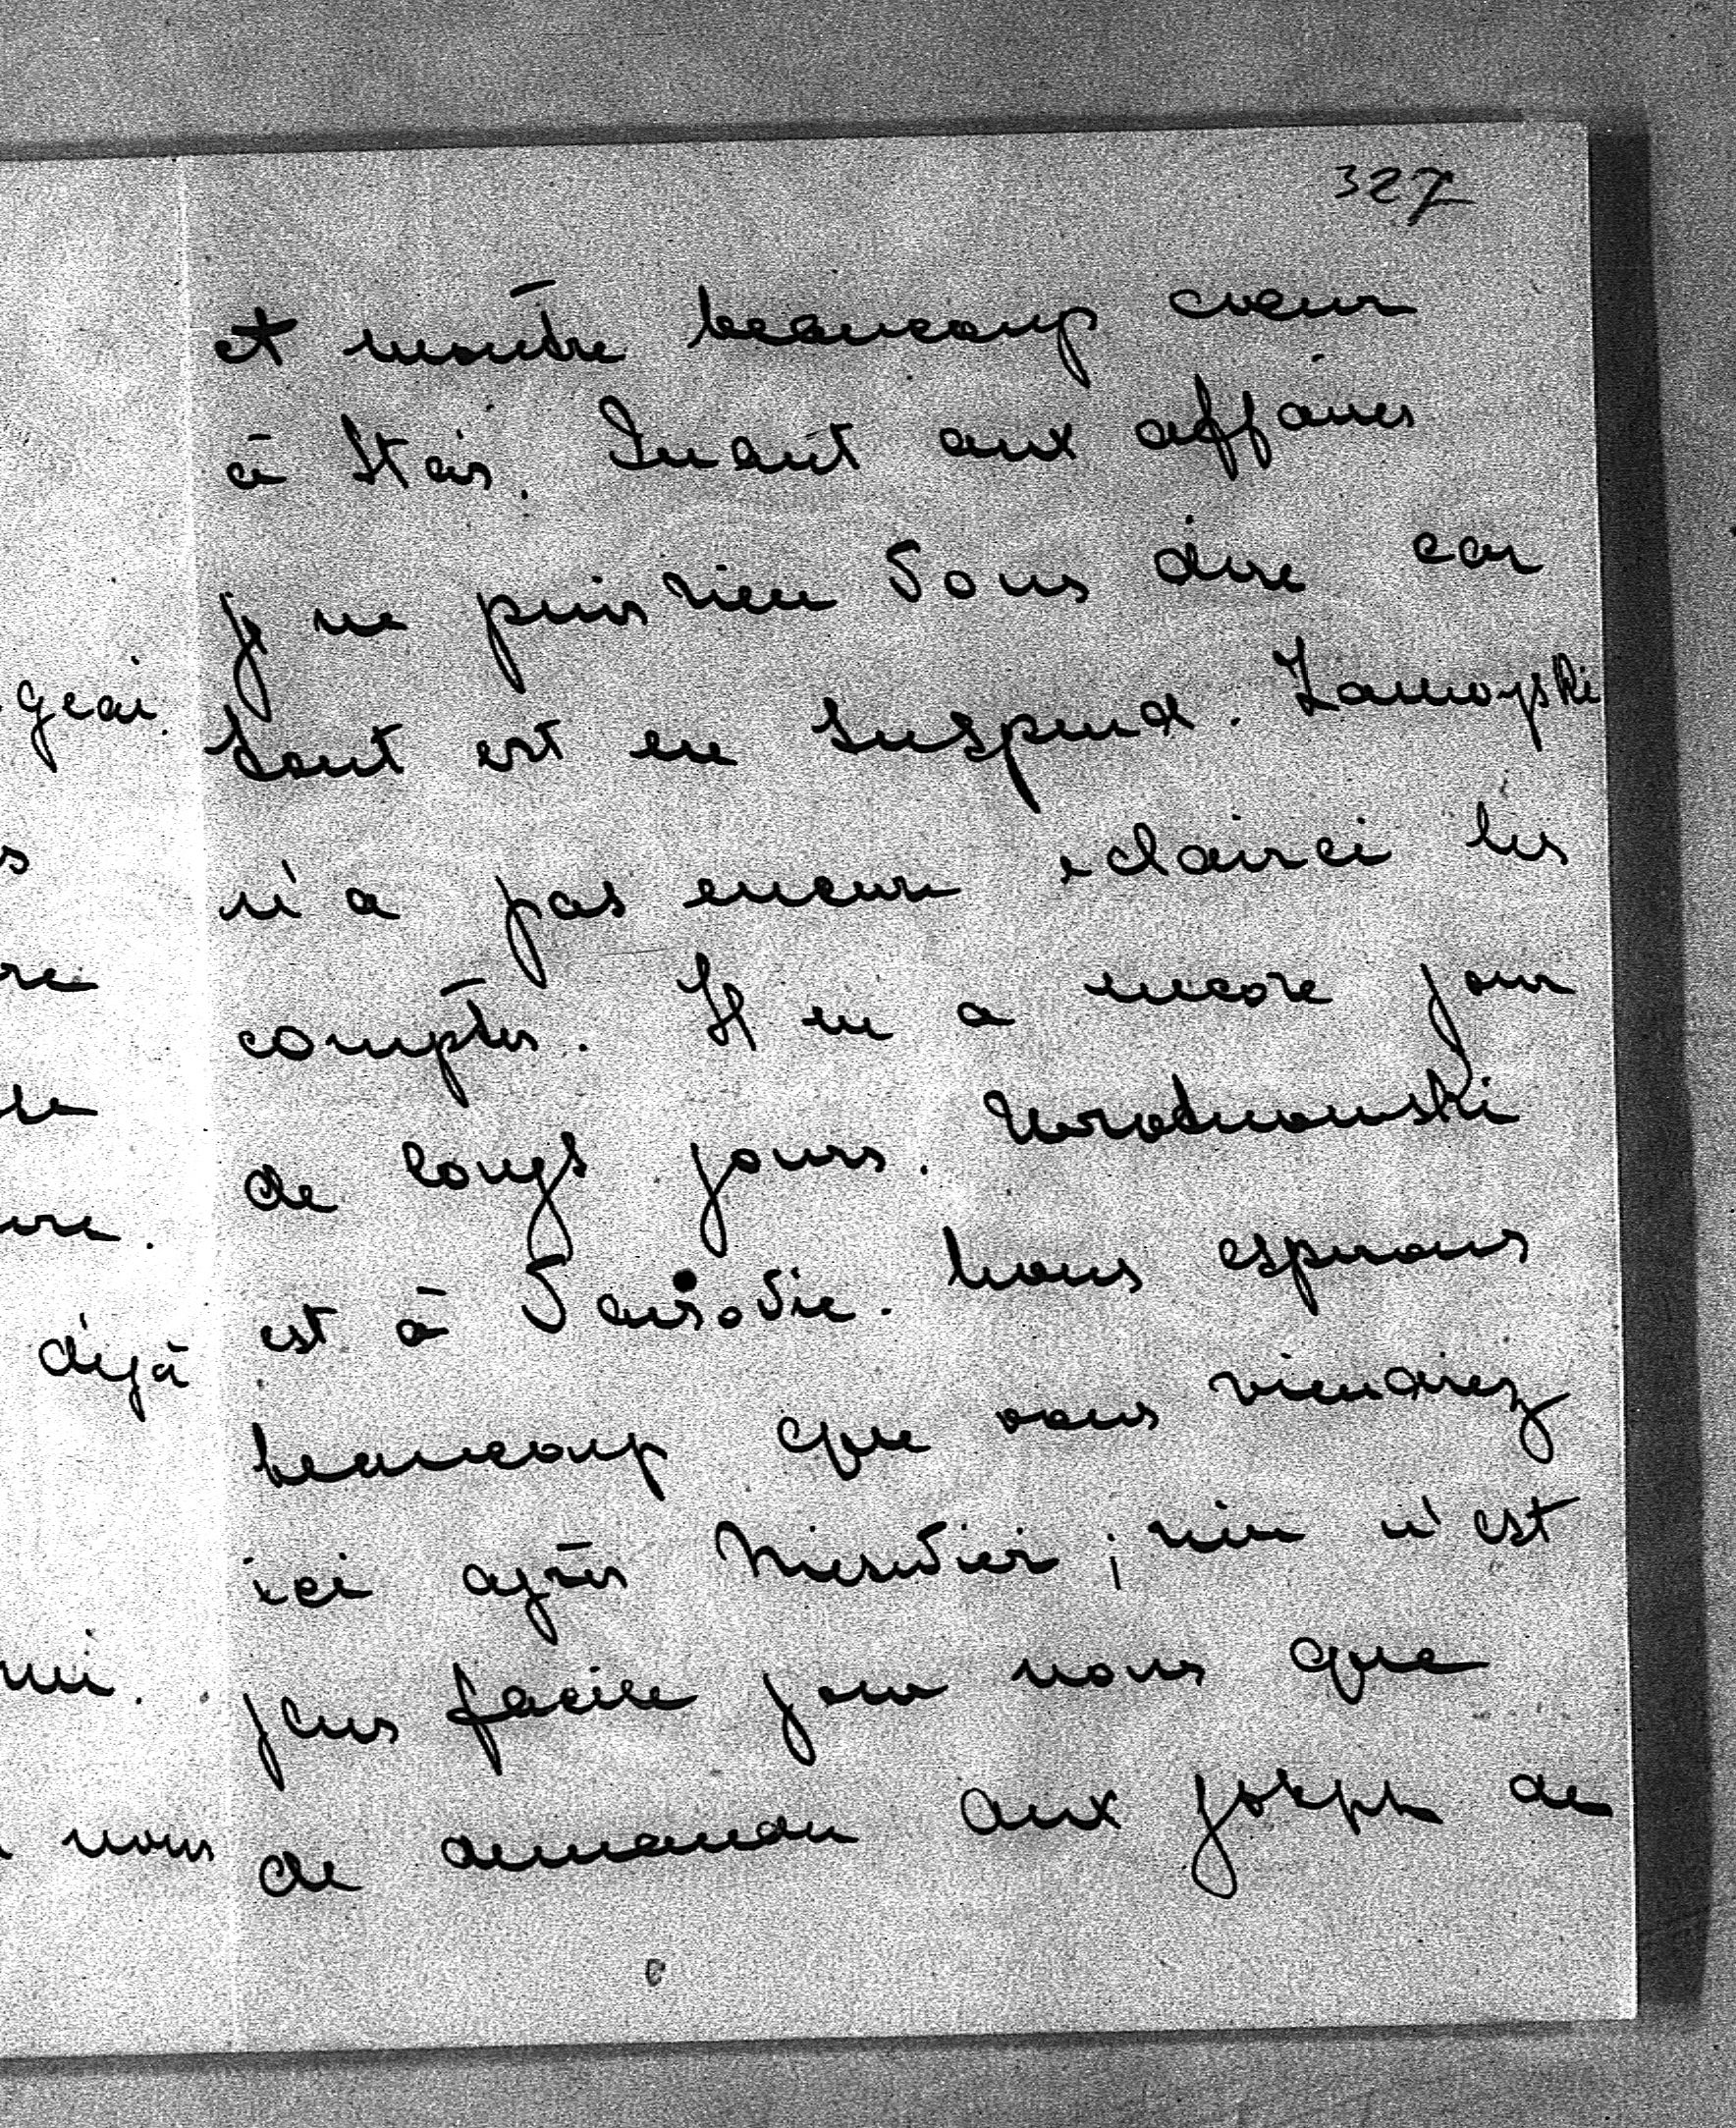 327
et montre beaucoup cœur
à Staś. Quant aux affaires
je ne puis rien Vous dire car
tout est en suspend. Zamoyski
n'a pas encore eclairci les
comptes. Il en a encore pour
de longs jours. 
est à Varsovie. Nous esperons
beaucoup que vous viendrez
ici après Nieśwież; rien n'est
plus facile pour nous que
de demander aux Joseph de
geai.
s
re
re.
déjà
nous